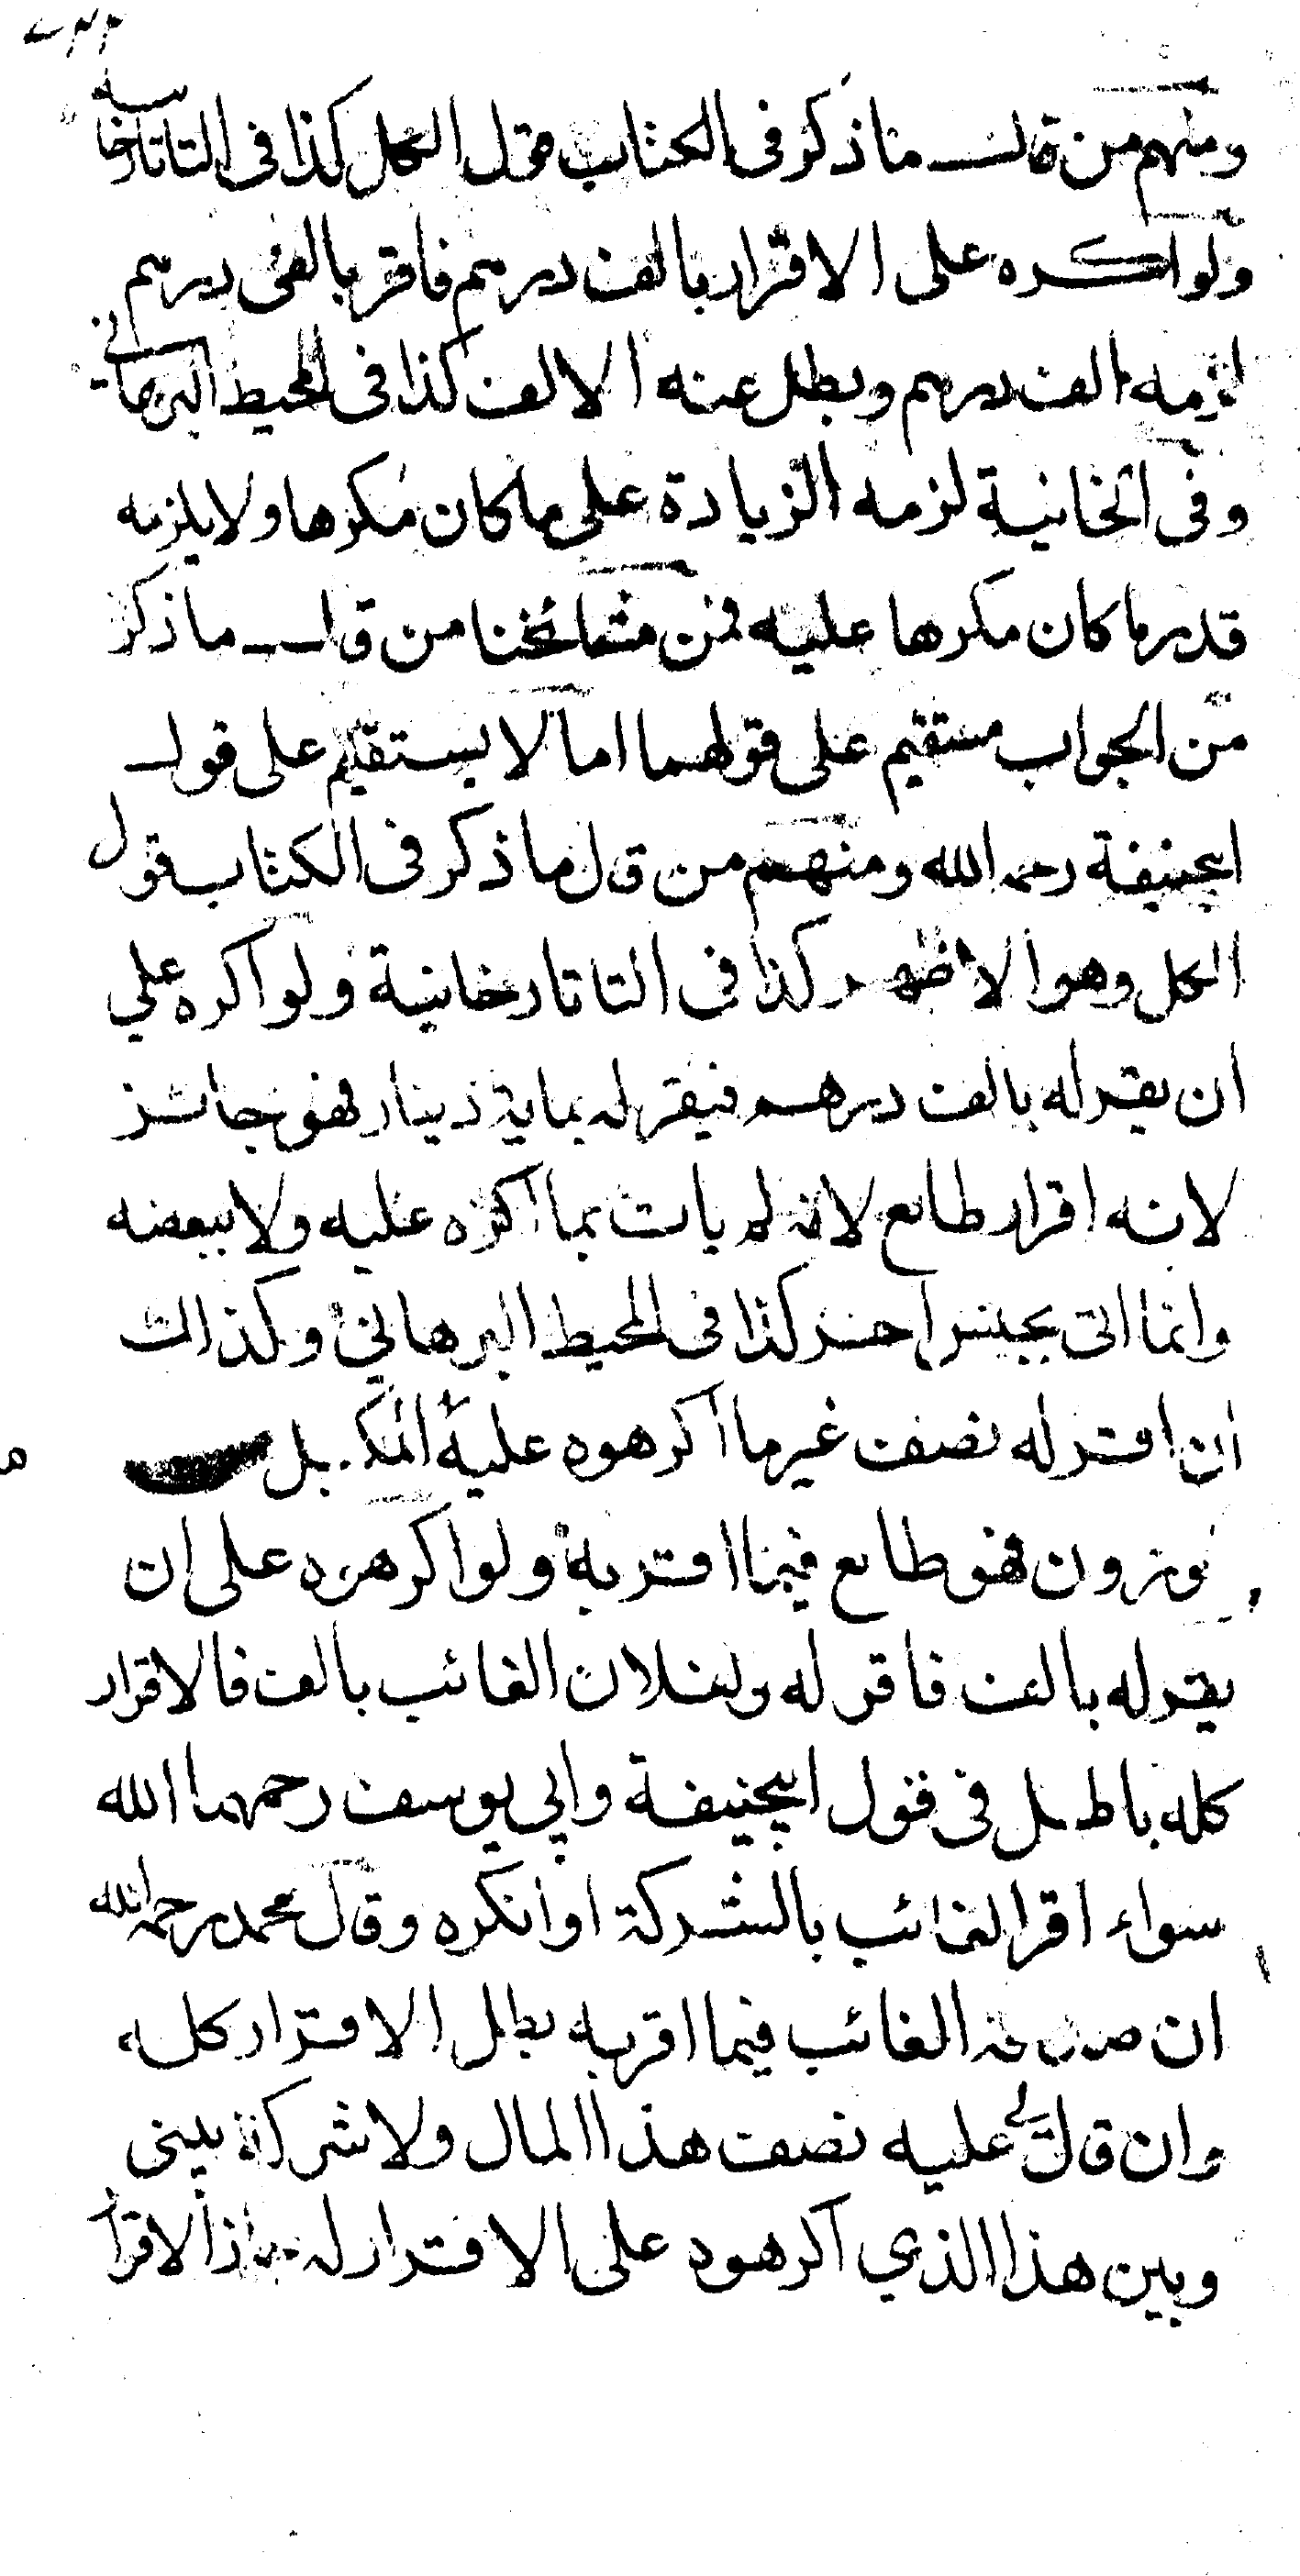 ومنهم من قال ما ذكر في الكتاب قول الكل كذا في التاتارخانية
ولو اكره على الاقرار بالف درهم فاقر بالفى درهم
لزمه الف درهم وبطل عنه الالف كذا في المحيط البرهاني
وفى الخانية لزمه الزيادة على ما كان مكرها ولا يلزمه
قدر ما كان مكرها عليه فمن مشائخنا من قال ما ذكر
من الجواب مستقيم على قولهما اما لا يستقيم على قول
ابيحنيفة رحمه الله ومنهم من قال ما ذكر في الكتاب قول
الكل وهو الاظهر كذا في التاتارخانية ولو اكره علي
ان يقر له بالف درهم فيقر له بماية دينار فهو جائز
لانه اقرار طايع لانه لم يات بما اكره عليه ولا ببعضه
وانما اتى بجنس اخر كذا في المحيط البرهاني وكذلك
ان اقر له نصف غير ما اكرهوه عليه المكيل
موزون فهو طايع فيما اقر به ولو اكرهوه على ان
يقر له بالف فاقر له ولفلان الغائب بالف فالاقرار
كله باطل في قول ابيحنيفة وابي يوسف رحمهما الله
سواء اقر الغائب بالشركة او انكره وقال محمد رحمه الله
ان صدقه الغائب فيما اقر به بطل الاقرار كله
وان قال لي عليه نصف هذا المال ولا شركة بينى
وبين هذا الذي اكرهوه على الاقرار له جاز الاقرار